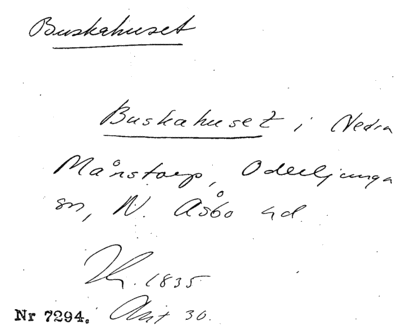 Buskahuset
Buskahuset i Nedra
Månstorp, Oderljunga
sn, N. Åsbo hd.
1835
Nr 7294. Akt 30.